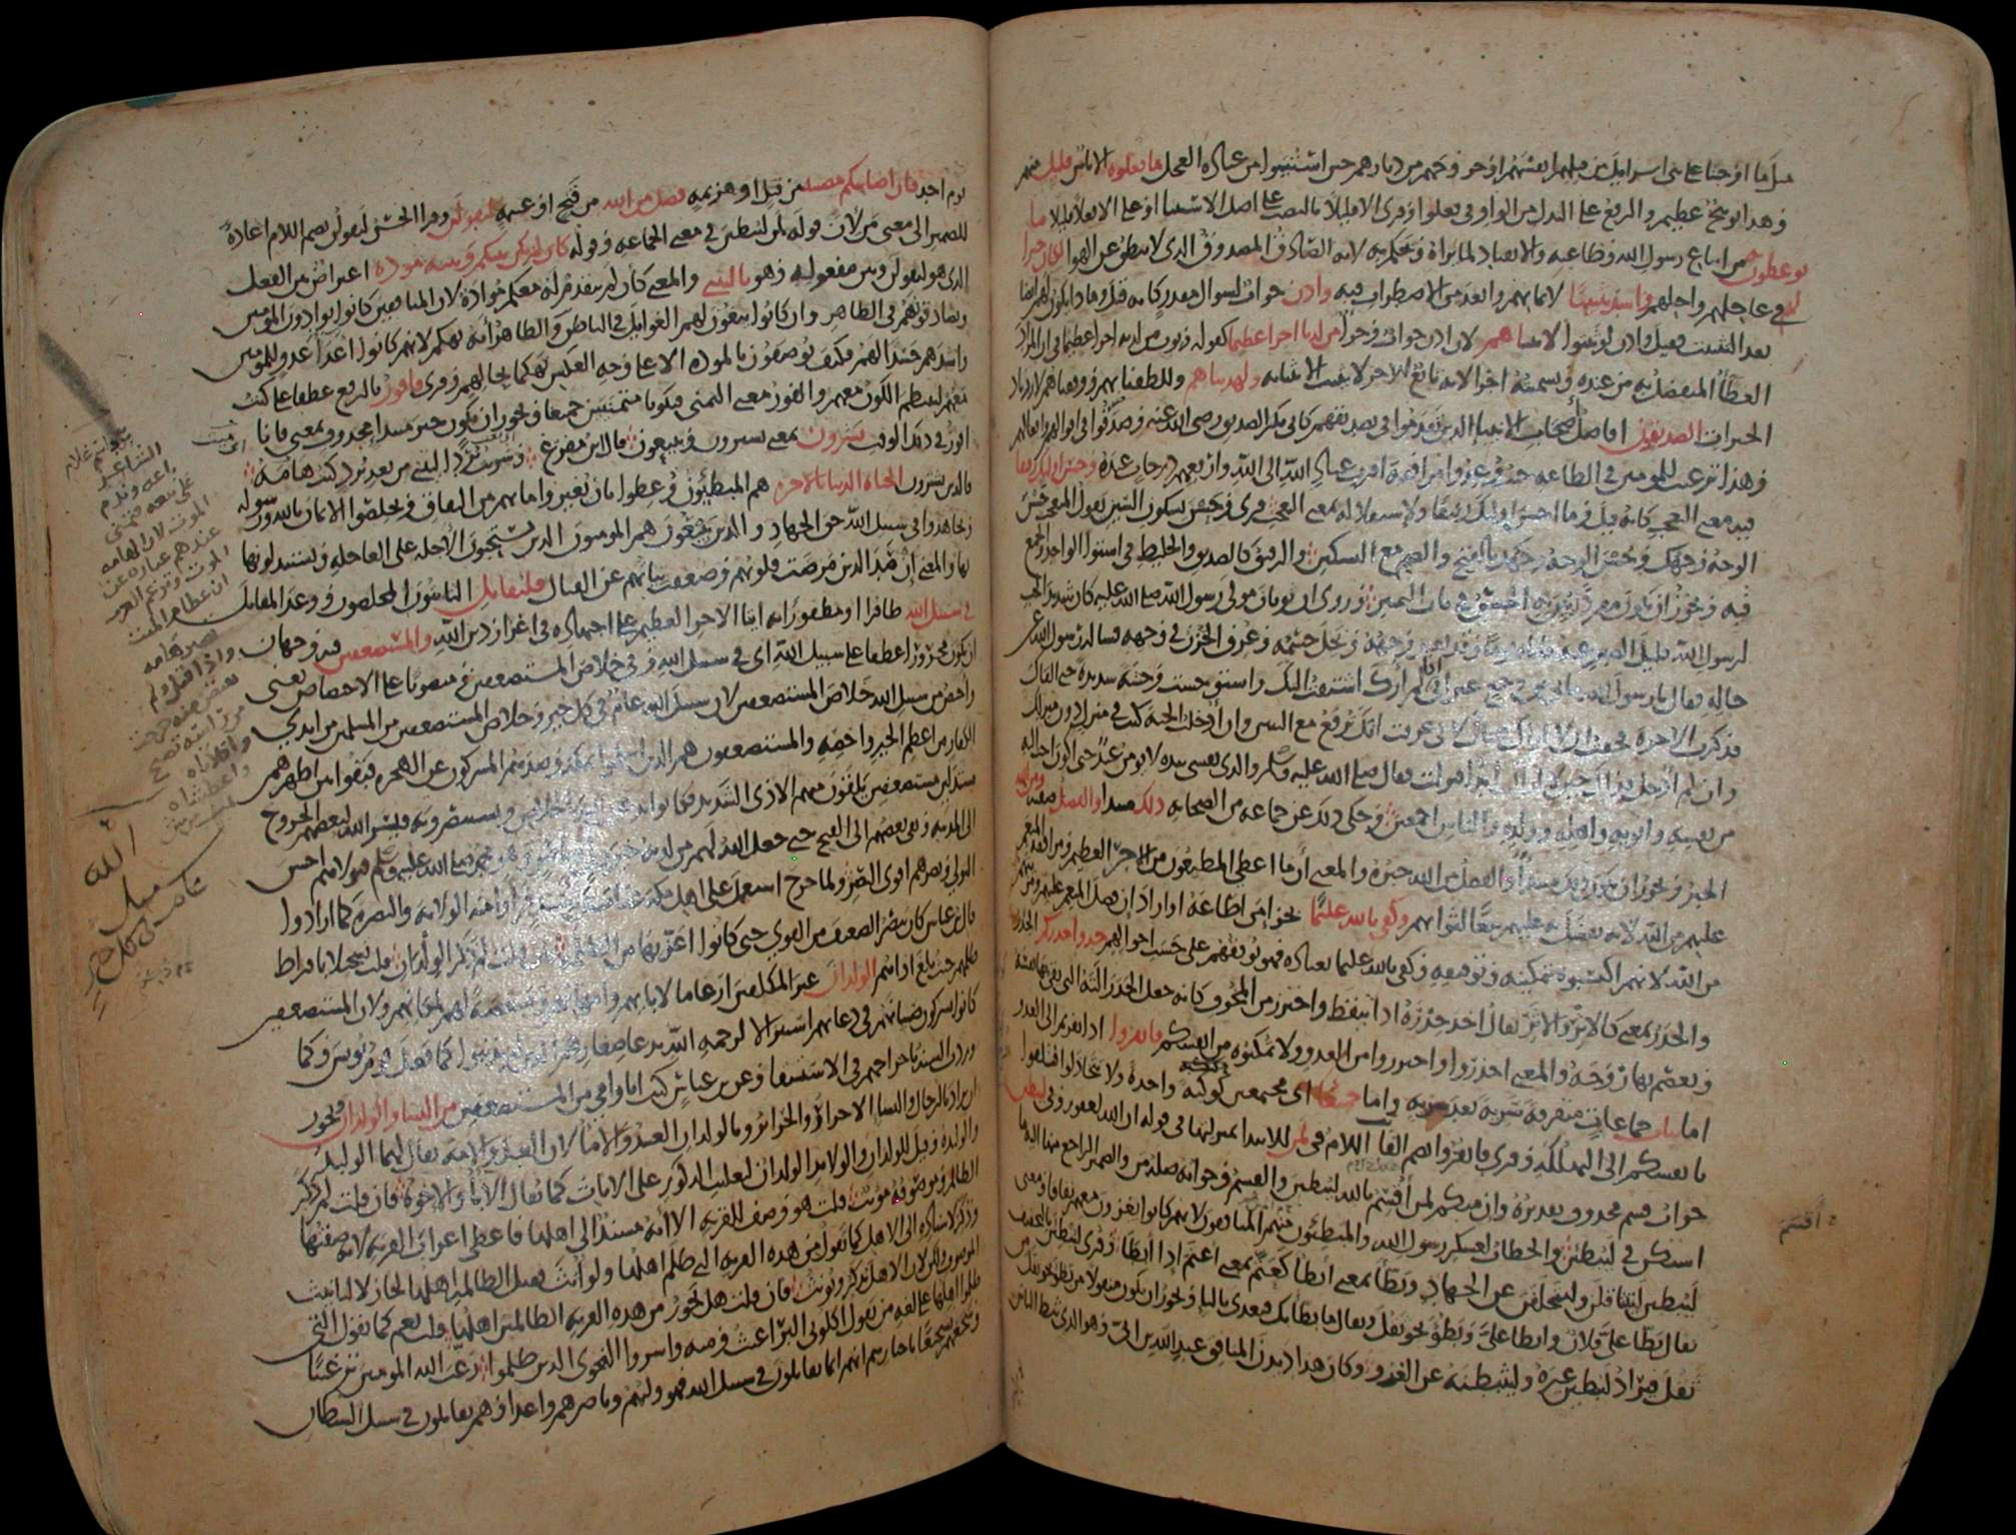 مثل ما أوجبنا على بني إسرائيل من قتلهم أنفسهم أو خروجهم من ديارهم حين استتيبوا من عبادة العجل ما فعلوه إلا ناس قليل منهم
وهذا توبيخ عظيم والرفع على البدل من الواو في فعلوه وقرئ إلا قليلا بالنصب على أصل الاستثناء أو على إلا فعلا قليلا ما
يوعظون به من اتباع رسول الله وطاعته والانقياد لما يراه ويحكم به لأنه الصادق المصدوق الذي لا ينطق عن الهوى لكان خيرا
لهم في عاجلهم وآجلهم وأشد تثبيتا لإيمانهم وأبعد من الاضطراب فيه وإذن جواب لسؤال مقدر كأنه قيل وماذا يكون لهم أيضا
بعد التثبيت فقيل وإذن لو ثبتوا لآتيناهم لأن إذن جواب وجزاء من لدنا أجرا عظيما كقوله ويؤت من لدنه أجرا عظيما في أن المراد
العطاء المتفضل به من عنده وتسميته أجرا لأنه تابع للأجر لا يثبت إلا بثباته ولهديناهم وللطفنا بهم ووفقناهم لازدياد
الخيرات الصديقون أفاضل أصحاب الأنبياء الذين تقدموا في تصديقهم كأبي بكر الصديق رضي الله عنه وصدقوا في أقوالهم وأفعالهم
وهذا ترغيب للمؤمنين في الطاعة حيث وعدوا مرافقة أقرب عباد الله إلى الله وأرفعهم درجات عنده وحسن أولئك رفيقا
فيه معنى التعجب كأنه قيل وما أحسن أولئك رفيقا ولاستقلاله بمعنى التعجب قرئ وحسن بسكون السين يقول المتعجب حسن
الوجه وجهك وحسن الوجه وجهك بالفتح والضم مع التسكين والرفيق كالصديق والخليط في استواء الواحد والجمع
فيه ويجوز أن يكون مفردا بين به الجنس في باب التمييز وروي أن ثوبان مولى رسول الله صلى الله عليه كان شديد الحب
لرسول الله قليل الصبر عنه فأتاه يوما وقد تغير وجهه ونحل جسمه وعرف الحزن في وجهه فسأله رسول الله عن
حاله فقال يا رسول الله ما بي من وجع غير أني إذا لم أرك اشتقت إليك واستوحشت وحشة شديدة حتى ألقاك
فذكرت الآخرة فخفت أن لا أراك هناك لأني عرفت أنك ترفع مع النبيين وإن أدخلت الجنة كنت في منزل دون منزلك
وإن لم أدخل فذاك حين لا أراك أبدا فنزلت فقال صلى الله عليه وسلم والذي نفسي بيده لا يؤمن عبد حتى أكون أحب إليه
من نفسه وأبويه وأهله وولده والناس أجمعين وحكي ذلك عن جماعة من الصحابة ذلك مبتدأ والفضل صفته ومن الله
الخبر ويجوز أن يكون ذلك مبتدأ والفضل من الله خبره والمعنى أن ما أعطي المطيعون من الأجر العظيم ومرافقة المنعم
عليهم من الله لأنه تفضل به عليهم تبعا لثوابهم وكفى بالله عليما بجزاء من أطاعه أو أراد أن فضل المنعم عليهم ومزيتهم
من الله لأنهم اكتسبوه بتمكينه وتوفيقه وكفى بالله عليما بعباده فهو يوفقهم على حسب أحوالهم خذوا حذركم الحذر
والحذر بمعنى كالإثر والأثر يقال أخذ حذره إذا تيقظ واحترز من المخوف كأنه جعل الحذر آلته التي يقي بها نفسه
ويعصم بها روحه والمعنى احذروا واحترزوا من العدو ولا تمكنوه من أنفسكم فانفروا إذا نفرتم إلى العدو
إما ثبات جماعات متفرقة سرية بعد سرية وإما جميعا أي مجتمعين كوكبة واحدة ولا تتخاذلوا فتلقوا
بأنفسكم إلى التهلكة وقرئ فانفروا بضم الفاء اللام في لمن للابتداء بمنزلتها في قوله إن الله لغفور وفي ليبطئن
جواب قسم محذوف تقديره وإن منكم لمن أقسم بالله ليبطئن والقسم وجوابه صلة من والضمير الراجع منها إليه ما
استكن في ليبطئن والخطاب لعسكر رسول الله والمبطئون منهم المنافقون لأنهم كانوا يغزون معهم نفاقا ومعنى
ليبطئن ليتثاقلن وليتخلفن عن الجهاد وبطأ بمعنى أبطأ كعتم بمعنى أعتم إذا أبطأ وقرئ ليبطئن بالتخفيف
يقال بطأ علي فلان وأبطأ علي وبطؤ نحو ثقل ويقال ما بطأ بك فيعدى بالباء ويجوز أن يكون منقولا من بطؤ نحو ثقل من
ثقل فيراد ليبطئن غيره وليثبطنه عن الغزو وكان هذا ديدن المنافق عبد الله بن أبي وهو الذي ثبط الناس
أقسم
يوم أحد فإن أصابتكم مصيبة من قتل أو هزيمة فضل من الله من فتح أو غنيمة ليقولن وقرأ الحسن ليقولن بضم اللام إعادة
للضمير إلى معنى من لأن قوله لمن ليبطئن في معنى الجماعة وقوله كأن لم تكن بينكم وبينه مودة اعتراض بين الفعل
الذي هو ليقولن وبين مفعوله وهو يا ليتني والمعنى كأن لم يتقدم له معكم موادة لأن المنافقين كانوا يوادون المؤمنين
ويصادقونهم في الظاهر وإن كانوا يبغون لهم الغوائل في الباطن والظاهر أنه تهكم لأنهم كانوا أعدى عدو للمؤمنين
وأشدهم حسدا لهم فكيف يوصفون بالمودة إلا على وجه العكس تهكما بحالهم وقرئ فأفوز بالرفع عطفا على كنت
معهم لينتظم الكون معهم والفوز معنى التمني فيكونا متمنيين جميعا ويجوز أن يكون خبر مبتدأ محذوف بمعنى فأنا
أفوز في ذلك الوقت يشرون بمعنى يشترون ويبيعون قال ابن مفرغ وشريت بردا ليتني من بعد برد كنت هامة
فالذين يشترون الحياة الدنيا بالآخرة هم المبطئون وعظوا بأن يغيروا ما بهم من النفاق ويخلصوا الإيمان بالله ورسوله
ويجاهدوا في سبيل الله حق الجهاد والذين يبيعون هم المؤمنون الذين يستحبون الآجلة على العاجلة ويستبدلونها
بها والمعنى إن صد الذين مرضت قلوبهم وضعفت نياتهم عن القتال فليقاتل التائبون المخلصون ووعد المقاتل
في سبيل الله ظافرا أو مظفورا به إيتاء الأجر العظيم على اجتهاده في إعزاز دين الله والمستضعفين فيه وجهان
أن يكون مجرورا عطفا على سبيل الله أي في سبيل الله وفي خلاص المستضعفين ومنصوبا على الاختصاص يعني
وأختص من سبيل الله خلاص المستضعفين لأن سبيل الله عام في كل خير وخلاص المستضعفين من المسلمين من أيدي
الكفار من أعظم الخير وأخصه والمستضعفون هم الذين أسلموا بمكة وصدهم المشركون عن الهجرة فبقوا بين أظهرهم
مستذلين مستضعفين يلقون منهم الأذى الشديد فكانوا يدعون الله بالخلاص ويستنصرونه فيسر الله لبعضهم الخروج
إلى المدينة وبقي بعضهم إلى الفتح حتى جعل الله لهم من لدنه خير ولي وناصر وهو محمد صلى الله عليه وسلم فتولاهم أحسن
التولي ونصرهم أقوى النصر ولما خرج استعمل على أهل مكة عتاب بن أسيد فرأوا منه الولاية والنصرة كما أرادوا
قال ابن عباس كان ينصر الضعيف من القوي حتى كانوا أعز بها من الظلمة فإن قلت لم ذكر الولدان قلت تسجيلا بإفراط
ظلمهم حيث بلغ أذاهم الولدان غير المكلفين إرغاما لآبائهم وأمهاتهم ومبغضة لهم لمكانهم ولأن المستضعفين
كانوا يشركون صبيانهم في دعائهم استنزالا لرحمة الله بدعاء صغارهم الذين لم يذنبوا كما فعل قوم يونس وكما
وردت السنة بإخراجهم في الاستسقاء وعن ابن عباس كنت أنا وأمي من المستضعفين من النساء والولدان ويجوز
أن يراد بالرجال والنساء الأحرار والحرائر وبالولدان العبيد والإماء لأن العبد والأمة يقال لهما الوليد
والوليدة وقيل للولدان والولائد الولدان لتغليب الذكور على الإناث كما يقال الآباء والإخوة فإن قلت لم ذكر
الظالم وموصوفه مؤنث قلت هو وصف للقرية إلا أنه مسند إلى أهلها فأعطي إعراب القرية لأنه صفتها
وذكر لإسناده إلى الأهل كما تقول من هذه القرية التي ظلم أهلها ولو أنث فقيل الظالمة أهلها لجاز لا لتأنيث
الموصوف ولكن لأن الأهل يذكر ويؤنث فإن قلت هل يجوز من هذه القرية الظالمين أهلها قلت نعم كما تقول التي
ظلموا أهلها على لغة من يقول أكلوني البراغيث ومنه وأسروا النجوى الذين ظلموا رغب الله المؤمنين ترغيبا
وشجعهم تشجيعا بإخبارهم أنهم إنما يقاتلون في سبيل الله فهو وليهم وناصرهم وأعداؤهم يقاتلون في سبيل الشيطان